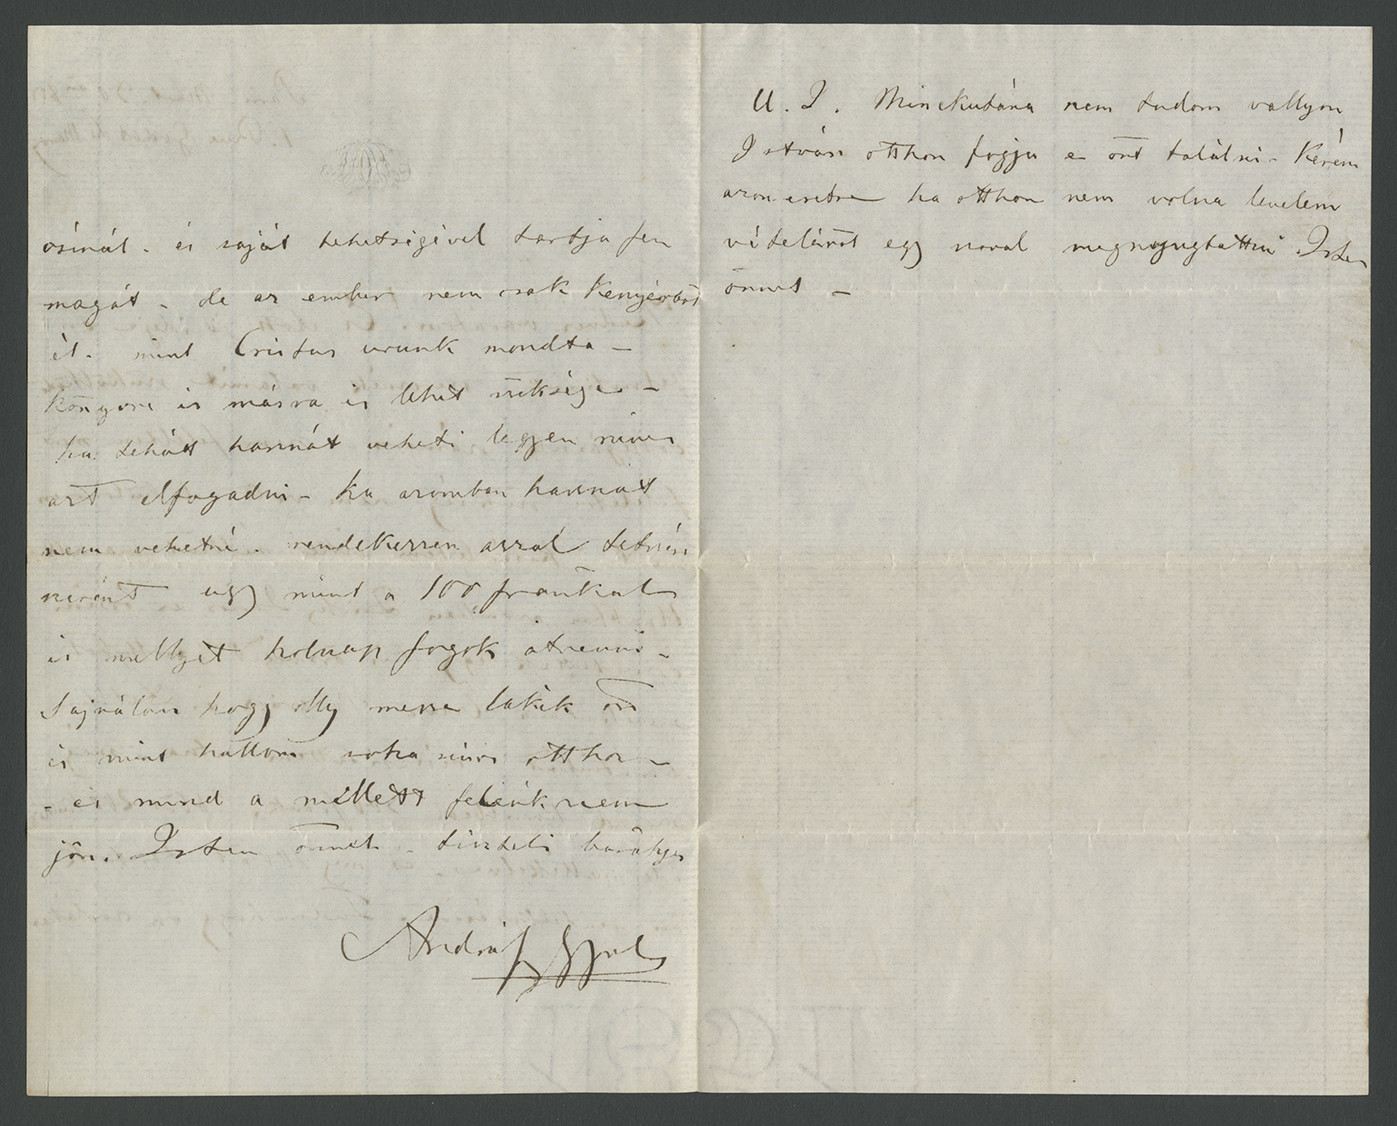 ösmát. és saját tehetségével tartja fen
magát – de az ember nem csak kenyérből
él. mint Cristus urunk mondta –
könyvre is másra is lehet szüksége –
ha tehát hasznát veheti legyen szives
azt elfogadni – ha azomban hasznát
nem vehetné. rendelkezzen azzal tetszés
szerént ugy mint a 100 frankal
is mellyet holnap fogok
Sajnálom hogy olly messze lakik ön
is mint hallom soha sincs otthon –
– és mind a mellett felénk nem
jön. Isten önnel – tiszteli barátja
Andrássy Gyula
U. I. Minekutána nem tudom vallyon
István otthon fogja e önt találni – kérem
azon esetre ha otthon nem volna levelem
vételéről egy szoval megnyugtattni Isten
önnel –